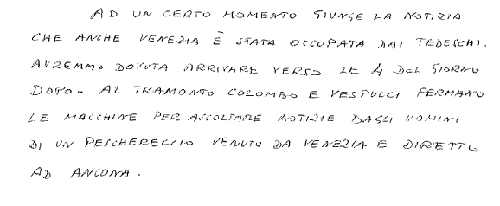 AD UN CERTO MOMENTO GIUNGE LA NOTIZIA
CHE ANCHE VENEZIA È STATA OCCUPATA DAI TEDESCHI.
AVREMMO DOVUTO ARRIVARE VERSO LE 4 DEL GIORNO
DOPO. AL TRAMONTO COLOMBO E VESPUCCI FERMANO
LE MACCHINE PER ASCOLTARE NOTIZIE DAGLI UOMINI
DI UN PESCHERECCIO VENUTO DA VENEZIA E DIRETTO
AD ANCONA.